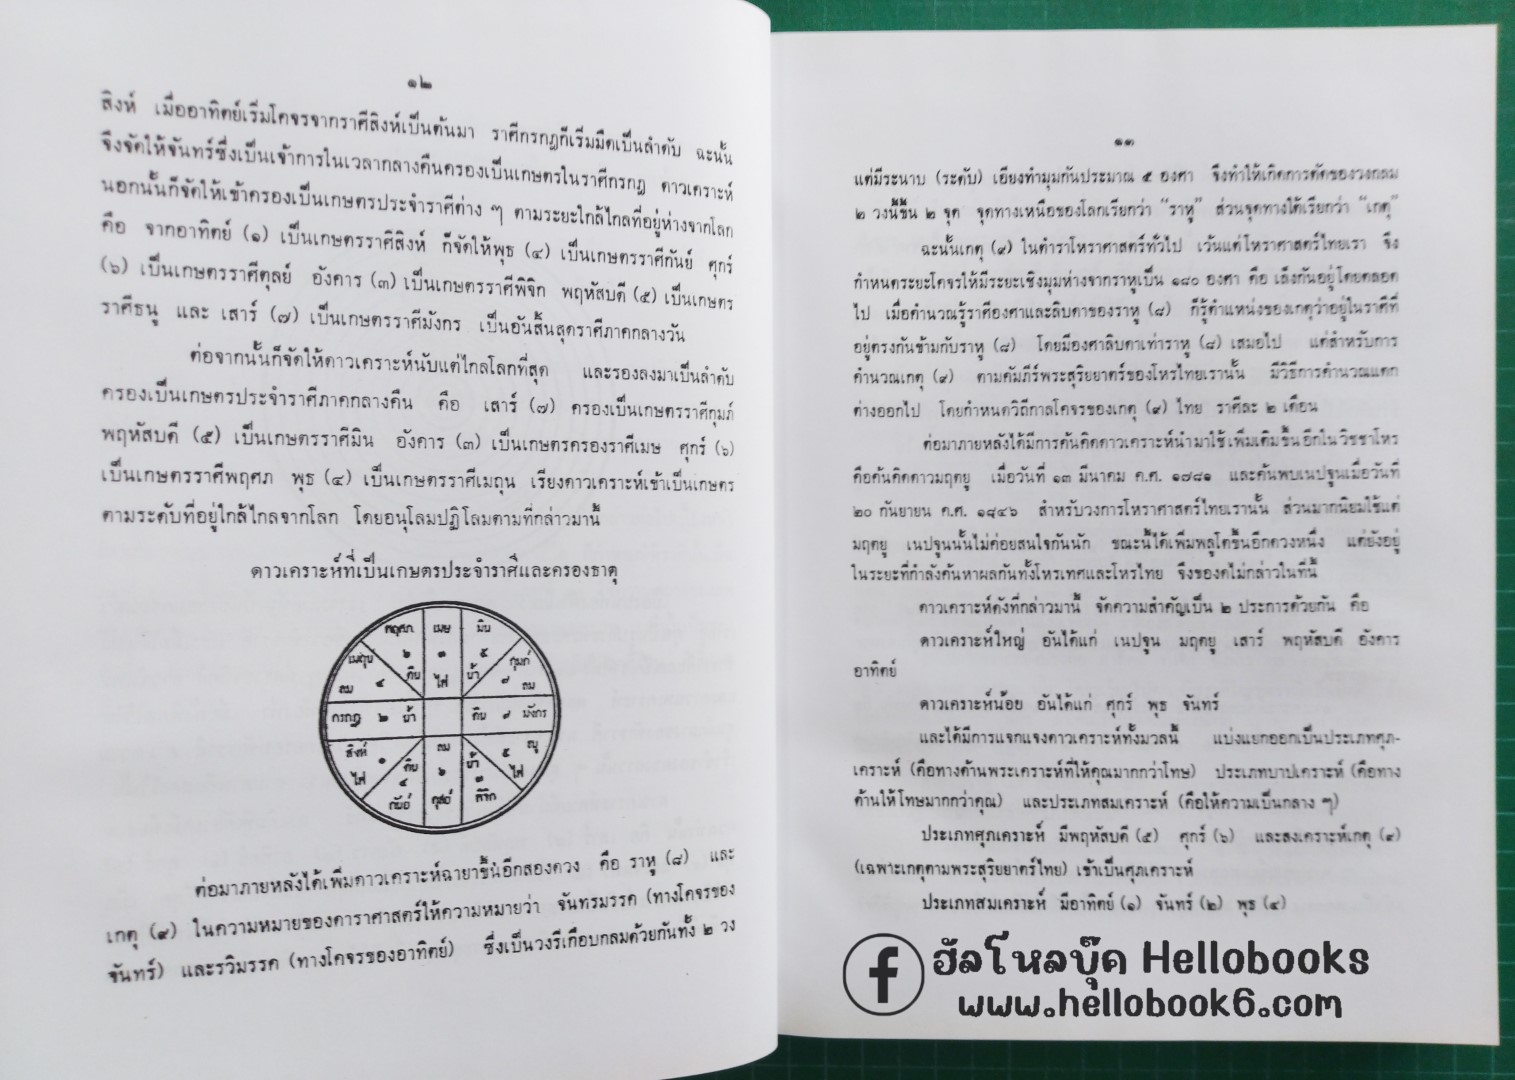 ๑๒
สิงห์ เมื่ออาทิตย์เริ่มโคจรจากราศีสิงห์เป็นต้นมา ราศีกรกฎก็เริ่มมืดเป็นลำดับ ฉะนั้น
จึงจัดให้จันทร์ซึ่งเป็นเจ้าการในเวลากลางคืนครองเป็นเกษตรในราศีกรกฎ ดาวเคราะห์
นอกนั้นก็จัดให้เข้าครองเป็นเกษตรประจำราศีต่าง ๆ ตามระยะใกล้ไกลที่อยู่ห่างจากโลก
คือ จากอาทิตย์ (๑) เป็นเกษตรราศีสิงห์ ก็จัดให้พุธ (๔) เป็นเกษตรราศีกันย์ ศุกร์
(๖) เป็นเกษตรราศีตุลย์ อังคาร (๓) เป็นเกษตรราศีพิจิก พฤหัสบดี (๕) เป็นเกษตร
ราศีธนู และ เสาร์ (๗) เป็นเกษตรราศีมังกร เป็นอันสิ้นสุดราศีภาคกลางวัน
ต่อจากนั้นก็จัดให้ดาวเคราะห์นับแต่ไกลโลกที่สุด และรองลงมาเป็นลำดับ
ครองเป็นเกษตรประจำราศีภาคกลางคืน คือ เสาร์ (๗) ครองเป็นเกษตรราศีกุมภ์
พฤหัสบดี (๕) เป็นเกษตรราศีมิน อังคาร (๓) เป็นเกษตรครองราศีเมษ ศุกร์ (๖)
เป็นเกษตรราศีพฤศภ พุธ (๔) เป็นเกษตรราศีเมถุน เรียงดาวเคราะห์เข้าเป็นเกษตร
ตามระดับที่อยู่ใกล้ไกลจากโลก โดยอนุโลมปฏิโลมตามที่กล่าวมานี้
ดาวเคราะห์ที่เป็นเกษตรประจำราศีและครองธาตุ
พฤศภ เมษ มิน
๖ ๓ ๕
เมถุน ดิน ไฟ น้ำ กุมภ์
ลม ๔ ๗ ลม
กรกฎ ๒ น้ำ ดิน ๗ มังกร
สิงห์ ๑ ดิน ลม น้ำ ๕
ไฟ ๔ ๖ ๓ ไฟ
กันย์ พิจิก
ต่อมาภายหลังได้เพิ่มดาวเคราะห์ฉายาขึ้นอีกสองดวง คือ ราหู (๘) และ
เกตุ (๙) ในความหมายของดาราศาสตร์ให้ความหมายว่า จันทรมรรค (ทางโคจรของ
จันทร์) และรวิมรรค (ทางโคจรของอาทิตย์) ซึ่งเป็นวงรีเกือบกลมด้วยกันทั้ง ๒ วง
๑๓
แต่มีระนาบ (ระดับ) เอียงทำมุมกันประมาณ ๕ องศา จึงทำให้เกิดการตัดของวงกลม
๒ วงนี้ขึ้น ๒ จุด จุดทางเหนือของโลกเรียกว่า “ราหู” ส่วนจุดทางใต้เรียกว่า “เกตุ”
ฉะนั้นเกตุ (๙) ในตำราโหราศาสตร์ทั่วไป เว้นแต่โหราศาสตร์ไทยเรา จึง
กำหนดระยะโคจรให้มีระยะเชิงมุมห่างจากราหูเป็น ๑๘๐ องศา คือ เล็งกันอยู่โดยตลอด
ไป เมื่อคำนวณรู้ราศีองศาและลิบดาของราหู (๘) ก็รู้ตำแหน่งของเกตุว่าอยู่ในราศีที่
อยู่ตรงกันข้ามกับราหู (๘) โดยมีองศาลิบดาเท่าราหู (๘) เสมอไป แต่สำหรับการ
คำนวณเกตุ (๙) ตามคัมภีร์พระสุริยยาตร์ของโหรไทยเรานั้น มีวิธีการคำนวณแตก
ต่างออกไป โดยกำหนดวิถีกาลโคจรของเกตุ (๙) ไทย ราศีละ ๒ เดือน
ต่อมาภายหลังได้มีการค้นคิดดาวเคราะห์นำมาใช้เพิ่มเติมขึ้นอีกในวิชชาโหร
คือค้นคิดดาวมฤตยู เมื่อวันที่ ๑๓ มีนาคม ค.ศ. ๑๗๘๑ และค้นพบเนปจูนเมื่อวันที่
๒๐ กันยายน ค.ศ. ๑๘๔๖ สำหรับวงการโหราศาสตร์ไทยเรานั้น ส่วนมากนิยมใช้แต่
มฤตยู เนปจูนนั้นไม่ค่อยสนใจกันนัก ขณะนี้ได้เพิ่มพลูโตขึ้นอีกดวงหนึ่ง แต่ยังอยู่
ในระยะที่กำลังค้นหาผลกันทั้งโหรเทศและโหรไทย จึงของดไม่กล่าวในที่นี้
ดาวเคราะห์ดังที่กล่าวมานี้ จัดความสำคัญเป็น ๒ ประการด้วยกัน คือ
ดาวเคราะห์ใหญ่ อันได้แก่ เนปจูน มฤตยู เสาร์ พฤหัสบดี อังคาร
อาทิตย์
ดาวเคราะห์น้อย อันได้แก่ ศุกร์ พุธ จันทร์
และได้มีการแจกแจงดาวเคราะห์ทั้งมวลนี้ แบ่งแยกออกเป็นประเภทศุภ-
เคราะห์ (คือทางด้านพระเคราะห์ที่ให้คุณมากกว่าโทษ) ประเภทบาปเคราะห์ (คือทาง
ด้านให้โทษมากกว่าคุณ) และประเภทสมเคราะห์ (คือให้ความเป็นกลาง ๆ)
ประเภทศุภเคราะห์ มีพฤหัสบดี (๕) ศุกร์ (๖) และสงเคราะห์เกตุ (๙)
(เฉพาะเกตุตามพระสุริยยาตร์ไทย) เข้าเป็นศุภเคราะห์
ประเภทสมเคราะห์ มีอาทิตย์ (๑) จันทร์ (๒) พุธ (๔)
f ฮัลโหลบุ๊ค Hellobooks
www.hellobook6.com